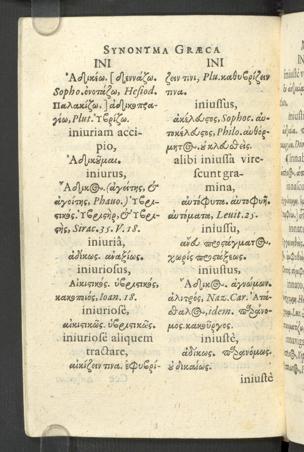 SYNONYMA GRÆCA
INI
Ἀδικέω. [δεννάζω.
Sopho. ὀνοτάζω, Hesiod.
Παλακίζω.] ἀδικοπρα-
γέω, Plut. Ὑβρίζω.
iniuriam acci-
pio,
Ἀδικοῦμαι.
iniurus,
Ἄδικος.
Sirac. 35. V. 18.
iniuriâ,
ἀδίκως. ἀναξίως.
iniuriosus,
Αἰκιστικός. ὑβριστικός,
κακοποιός, Ioan. 18.
iniuriosè,
αἰκιστικῶς. ὑβριστικῶς.
iniuriosè aliquem
tractare,
αἰκίζειν τινα. ἐφυβρί-
INI
ζειν τινι, Plu. καθυβρίζειν
τινα.
iniussus,
ἀκέλευστος, Sophoc. αὐ-
τοκέλευστος, Philo. αὐθόρ-
μητος. οὐ κλυσθείς.
alibi iniussa vire-
scunt gra-
mina,
αὐτόφυτα. αὐτοφυῆ.
αὐτόματα, Leuit. 25.
iniussu,
ἄνευ προστάγματος.
χωρὶς προστάξεως.
iniustus,
Ἄδικος. ἀγνώμων.
ἀλιτρός, Naz. Car. Ἀτά-
σθαλος, idem. παράνο-
μος. κακοῦργος.
iniustè,
ἀδίκως. παρανόμως.
οὐ δικαίως.
iniustè